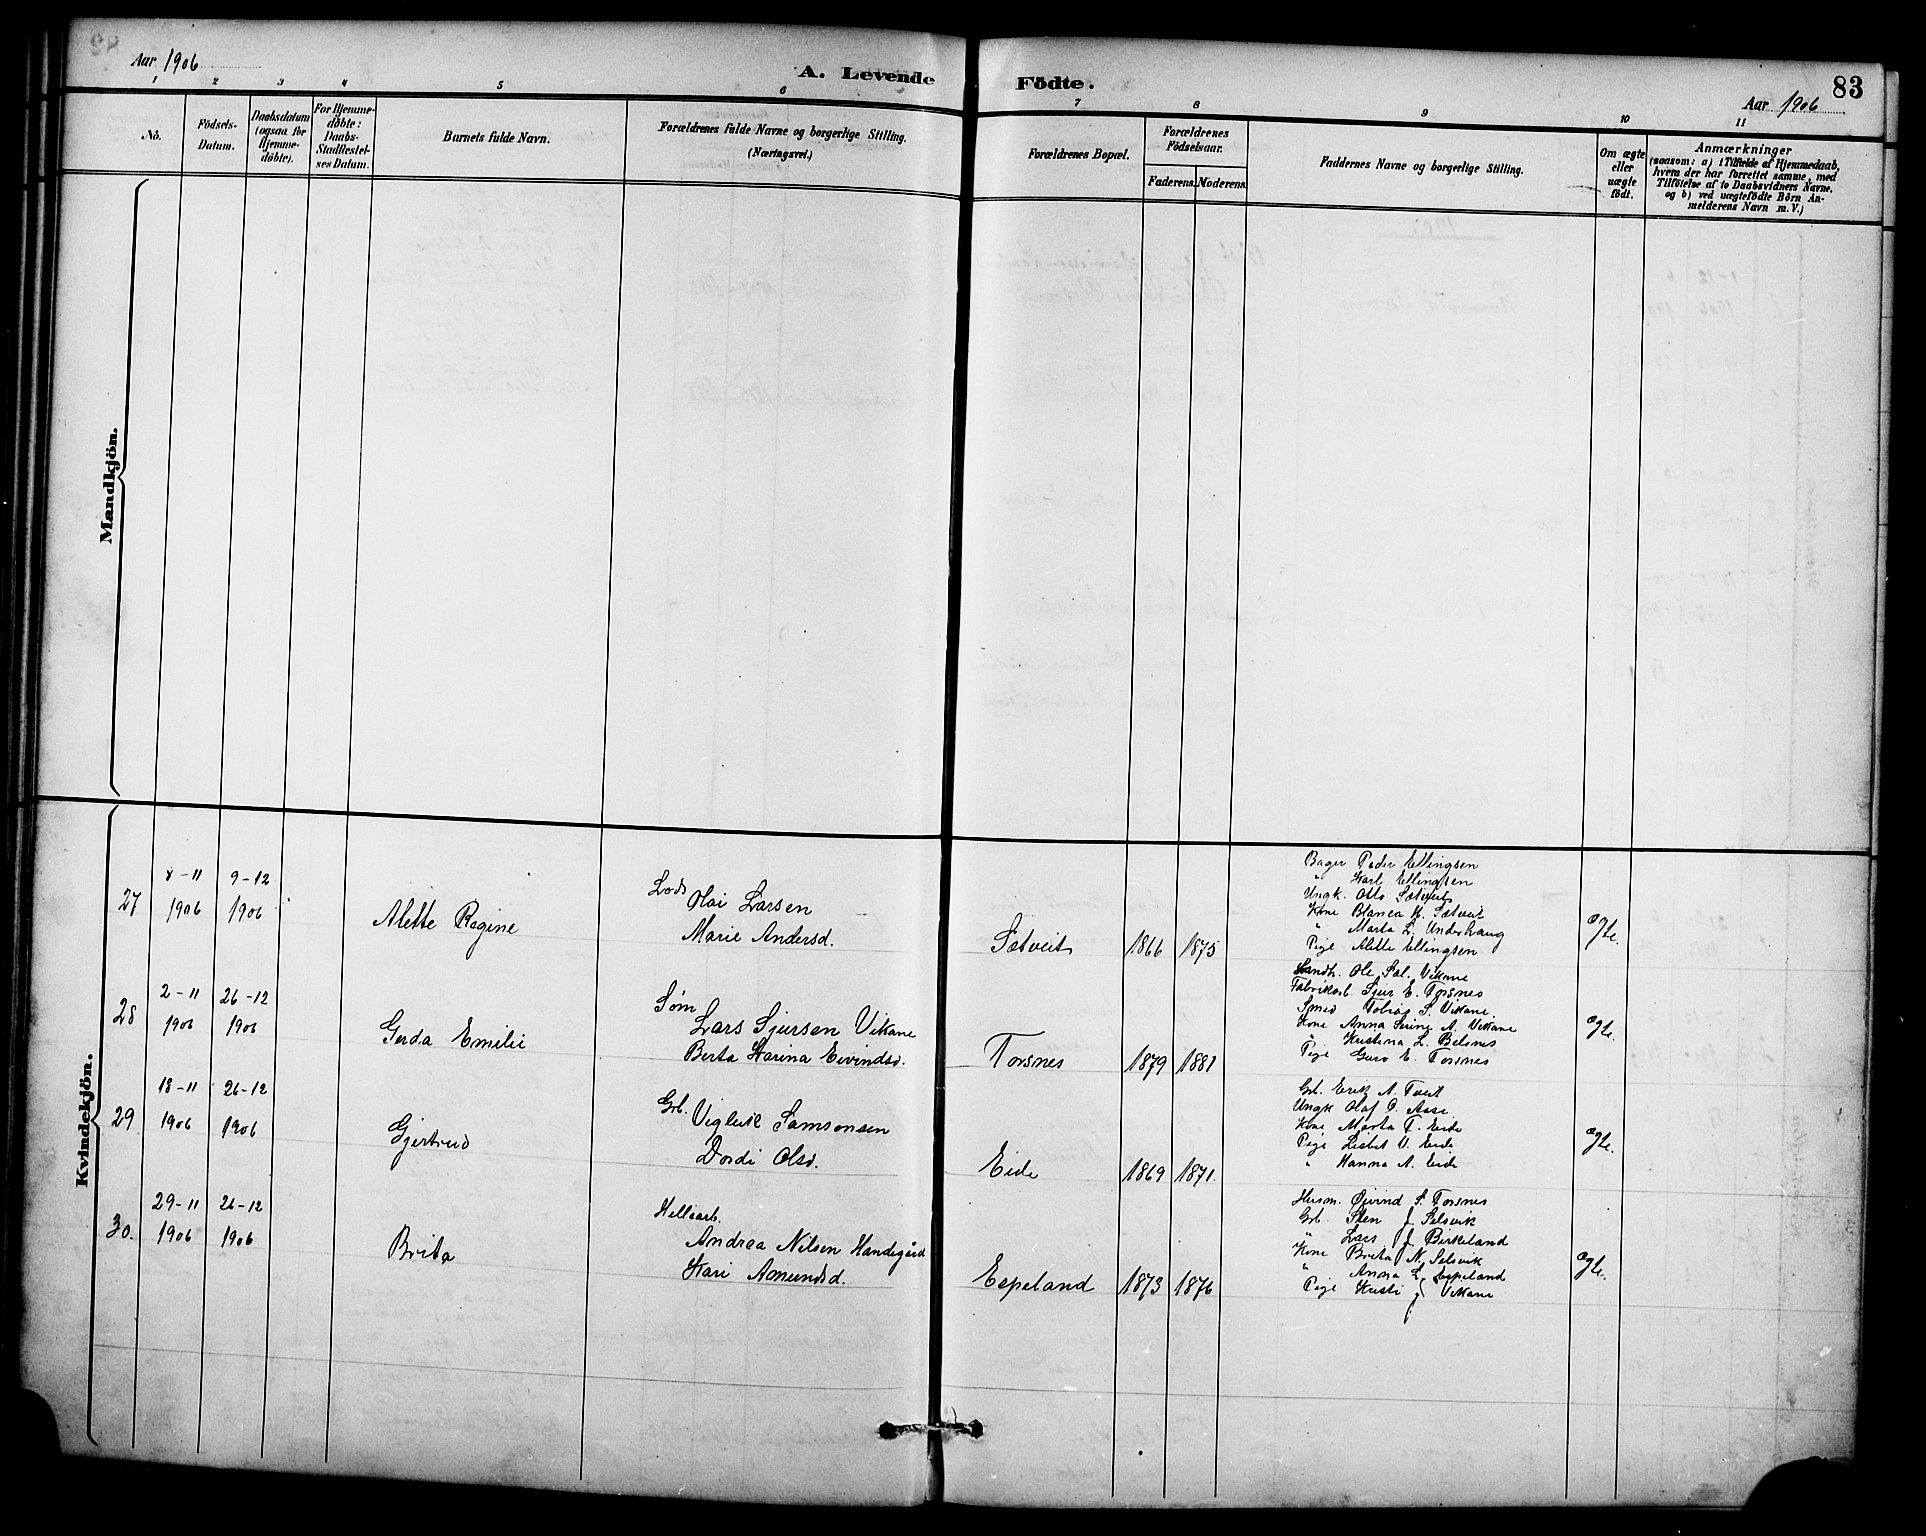 Aar 1906
A. Levende
Födte.
83
Aar 1906
1
2
3
4
5
6
7
8
9
10
11
No.
Födsels-
Datum.
Daabsdatum
(ogsaa for
Hjemme-
døbte).
For Hjemme-
døbte:
Daabs-
Stadfæstel-
ses Datum.
Barnets fulde Navn.
Forældrenes fulde Navne og borgerlige Stilling.
(Næringsvei.)
Forældrenes Bopæl.
Forældrenes
Födselsaar.
Faderens.
Moderens.
Faddernes Navne og borgerlige Stilling.
Om ægte
eller
uægte
födt.
Anmærkninger
(saasom: a) i Tilfælde af Hjemmedaab,
hvem der har forrettet samme, med
Tilföielse af to Daabsvidners Navne,
og b) ved uægtefödte Börn An-
melderens Navn m. V.)
Mandkjön.
Kvindekjön.
27
8-11
1906
9-12
1906
Alette Regine
Lods
Olai Larsen
Marie Andersd.
Sætveit
1866
1875
Bager Peder Ellingsen
" Karl Ellingsen
Ungk. Otto Sætveit
Kone Blanca M. Sætveit
" Marta L. Underhaug
Pige Alette Ellingsen
Ægte.
28
2-11
1906
26-12
1906
Gerda Emilie
Søm
Lars Sjursen Vikane
Berta Karina Eivindsd.
Torsnes
1879
1881
Handh. Ole Sæl. Vikane
Fabrikarb. Sjur E. Torsnes
Smed Tobias S. Vikane.
Kone Anna Serine A. Vikane
" Kristina L. Belsnes
Pige Guro E. Torsnes
Ægte.
29
18-11
1906
26-12
1906
Gjertrud
Grb.
Vigleik Samsonsen
Dordi Olsd.
Eide
1869
1871.
Grb. Erik A. Tveit
Ungk Olaf O. Aase
Kone Marta T. Eide
Pige Lisbet V. Eide
" Hanna A. Eide
Ægte.
30.
29-11
1906
26-12
1906
Brita
Hellearb.
Andrea Nilsen Handegård
Kari Amundsd.
Espeland
1873
1876
Husm. Øivind S. Torsnes
Grb. Sten J. Selsvik
" Lars J. Birkeland
Kone Brita N. Selsvik
" Anna L. Espeland
Pige Kristi J. Vikane
Ægte.